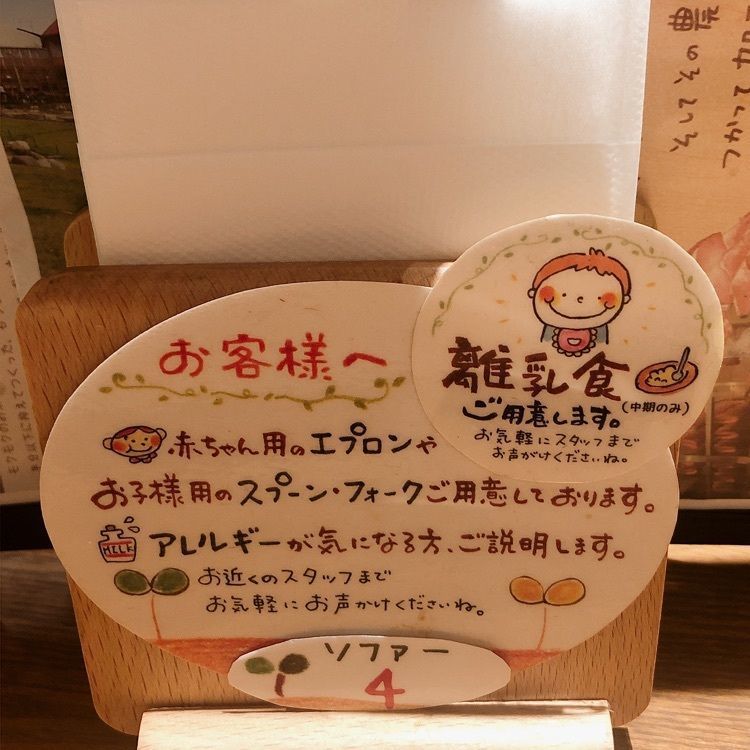 お客様へ
赤ちゃん用のエプロンや
お子様用のスプーン・フォークご用意しております。
MILK
アレルギーが気になる方、ご説明します。
お近くのスタッフまで
お気軽にお声かけくださいね。
離乳食
ご用意します。(中期のみ)
お気軽にスタッフまで
お声がけくださいね。
ソファー
4